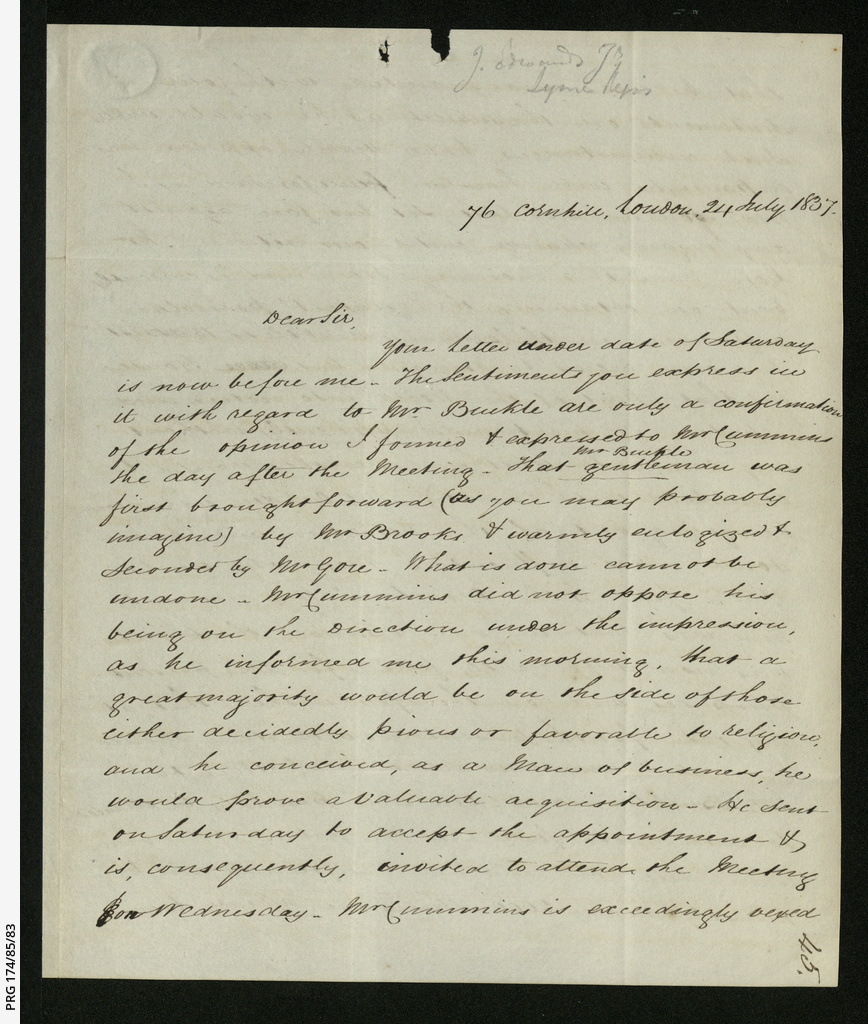 J. Edwards
Lyme Regis
76 Cornhill, London. 24 July 1837.
Dear Sir,
Your Letter under date of Saturday
is now before me - The Sentiments you express in
it with regard to Mr. Buckle are only a confirmation
of the opinion I formed & expressed to Mr Cummins
Mr. Buckle
the day after the Meeting - That gentleman was
first brought forward (as you may probably
imagine) by Mr Brooks & warmly eulogized &
seconded by Mr Gore - What is done cannot be
undone - Mr Cummins did not oppose his
being on the Direction under the impression,
as he informed me this morning, that a
great majority would be on the side of those
either decidedly pious or favorable to religion,
and he conceived, as a Man of business, he
would prove a valuable acquisition - He sent
on Saturday to accept the appointment &
is, consequently, invited to attend the Meeting
on Wednesday - Mr Cummins is exceedingly vexed
45.
PRG 174/85/83